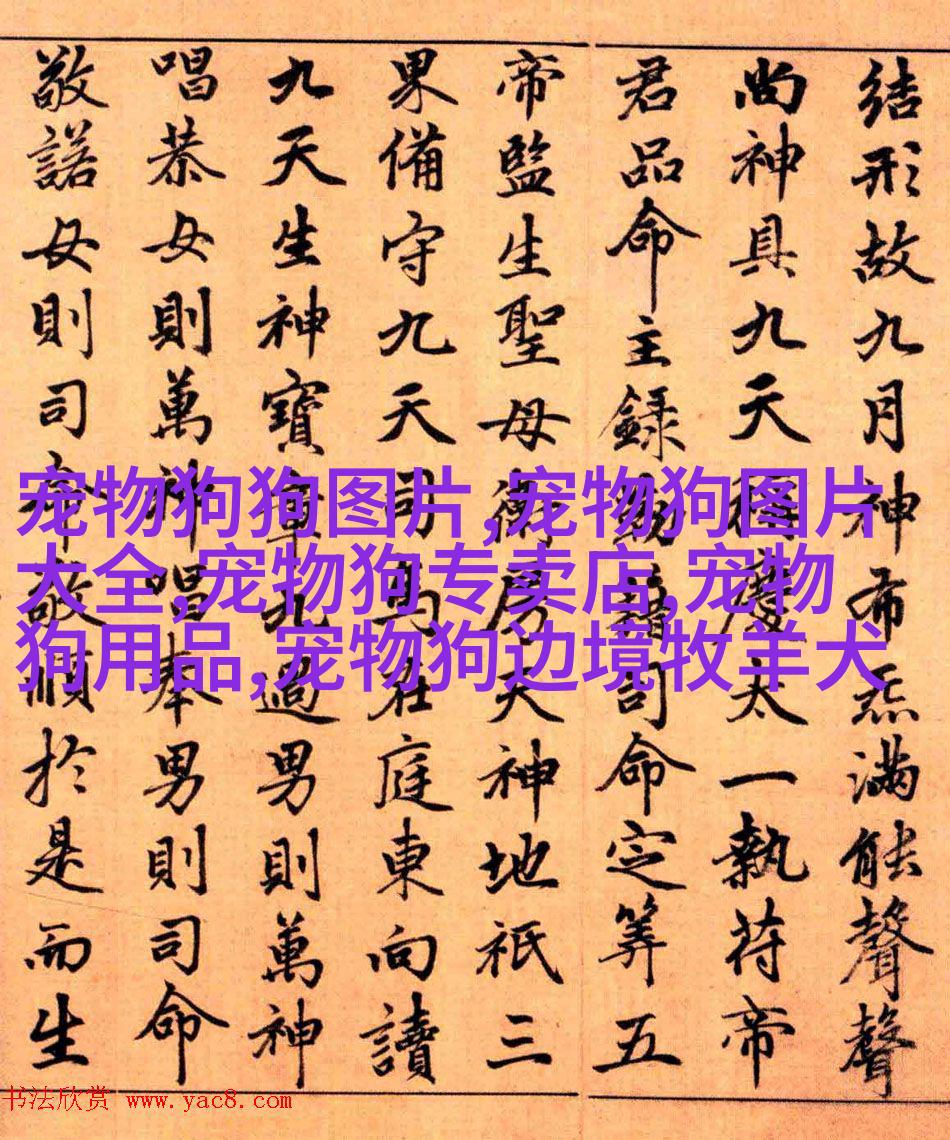 结形故九月神布炁满能聲聲
尚神具九天稱慶太一執苻帝
君品命主録勒籍司命定筭五
帝監生聖母衛房天神地祇三
果備守九天司馬在庭東向讀
九天生神寶章九過男則萬神
唱恭女則萬神唱奉男則司命
敬諾女則司命敬順於是而生
宠物狗狗图片,宠物狗图片
大全,宠物狗专卖店,宠物
狗用品,宠物狗边境牧羊犬
书法欣赏 www.yac8.com